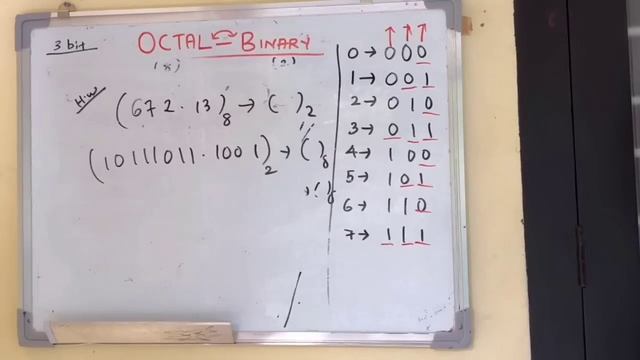 3 bit
OCTAL ⇌ BINARY
(8) (2)
H.W
(672.13)₈ → ( )₂
(10111011.1001)₂ → ( )₈
→ ( )₈
0 → 000
1 → 001
2 → 010
3 → 011
4 → 100
5 → 101
6 → 110
7 → 111